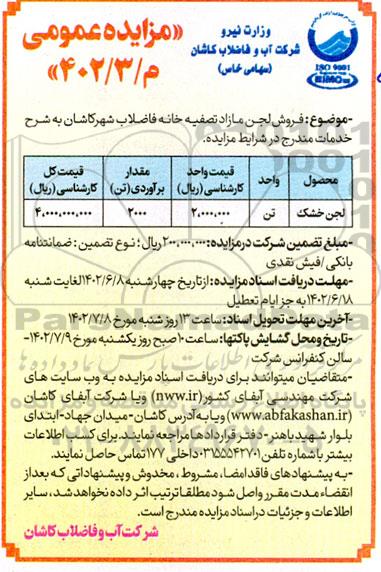 وزارت نیرو
شرکت آب و فاضلاب کاشان
(سهامی خاص)
ISO 9001
«مزایده عمومی
م/۴۰۲/۳»
-موضوع: فروش لجن مازاد تصفیه خانه فاضلاب شهرکاشان به شرح
خدمات مندرج در شرایط مزایده.
محصول واحد قیمت واحد کارشناسی (ریال) مقدار برآوردی (تن) قیمت کل کارشناسی (ریال)
لجن خشک تن ۲,۰۰۰,۰۰۰ ۲۰۰۰ ۴,۰۰۰,۰۰۰,۰۰۰
-مبلغ تضمین شرکت در مزایده: ۲۰۰,۰۰۰,۰۰۰ ریال؛ نوع تضمین: ضمانتنامه
بانکی/فیش نقدی
-مهلت دریافت اسناد مزایده: از تاریخ چهارشنبه ۱۴۰۲/۶/۸ لغایت شنبه
۱۴۰۲/۶/۱۸ به جز ایام تعطیل
-آخرین مهلت تحویل اسناد: ساعت ۱۳ روز شنبه مورخ ۱۴۰۲/۷/۸
-تاریخ و محل گشایش پاکتها: ساعت ۱۰ صبح روز یکشنبه مورخ ۱۴۰۲/۷/۹-
سالن کنفرانس شرکت
-متقاضیان میتوانند برای دریافت اسناد مزایده به وب سایت های
شرکت مهندسی آبفای کشور (nww.ir) ویا شرکت آبفای کاشان
(www.abfakashan.ir) و یا به آدرس کاشان-میدان جهاد-ابتدای
بلوار شهید باهنر-دفتر قراردادها مراجعه نمایند. برای کسب اطلاعات
بیشتر با شماره تلفن ۰۳۱۵۵۵۴۲۷۰۱ داخلی ۱۷۷ تماس حاصل نمایند.
-به پیشنهادهای فاقد امضا، مشروط، مخدوش و پیشنهاداتی که بعد از
انقضاء مدت مقرر واصل شود مطلقا ترتیب اثر داده نخواهد شد، سایر
اطلاعات و جزئیات در اسناد مزایده مندرج است.
شرکت آب و فاضلاب کاشان